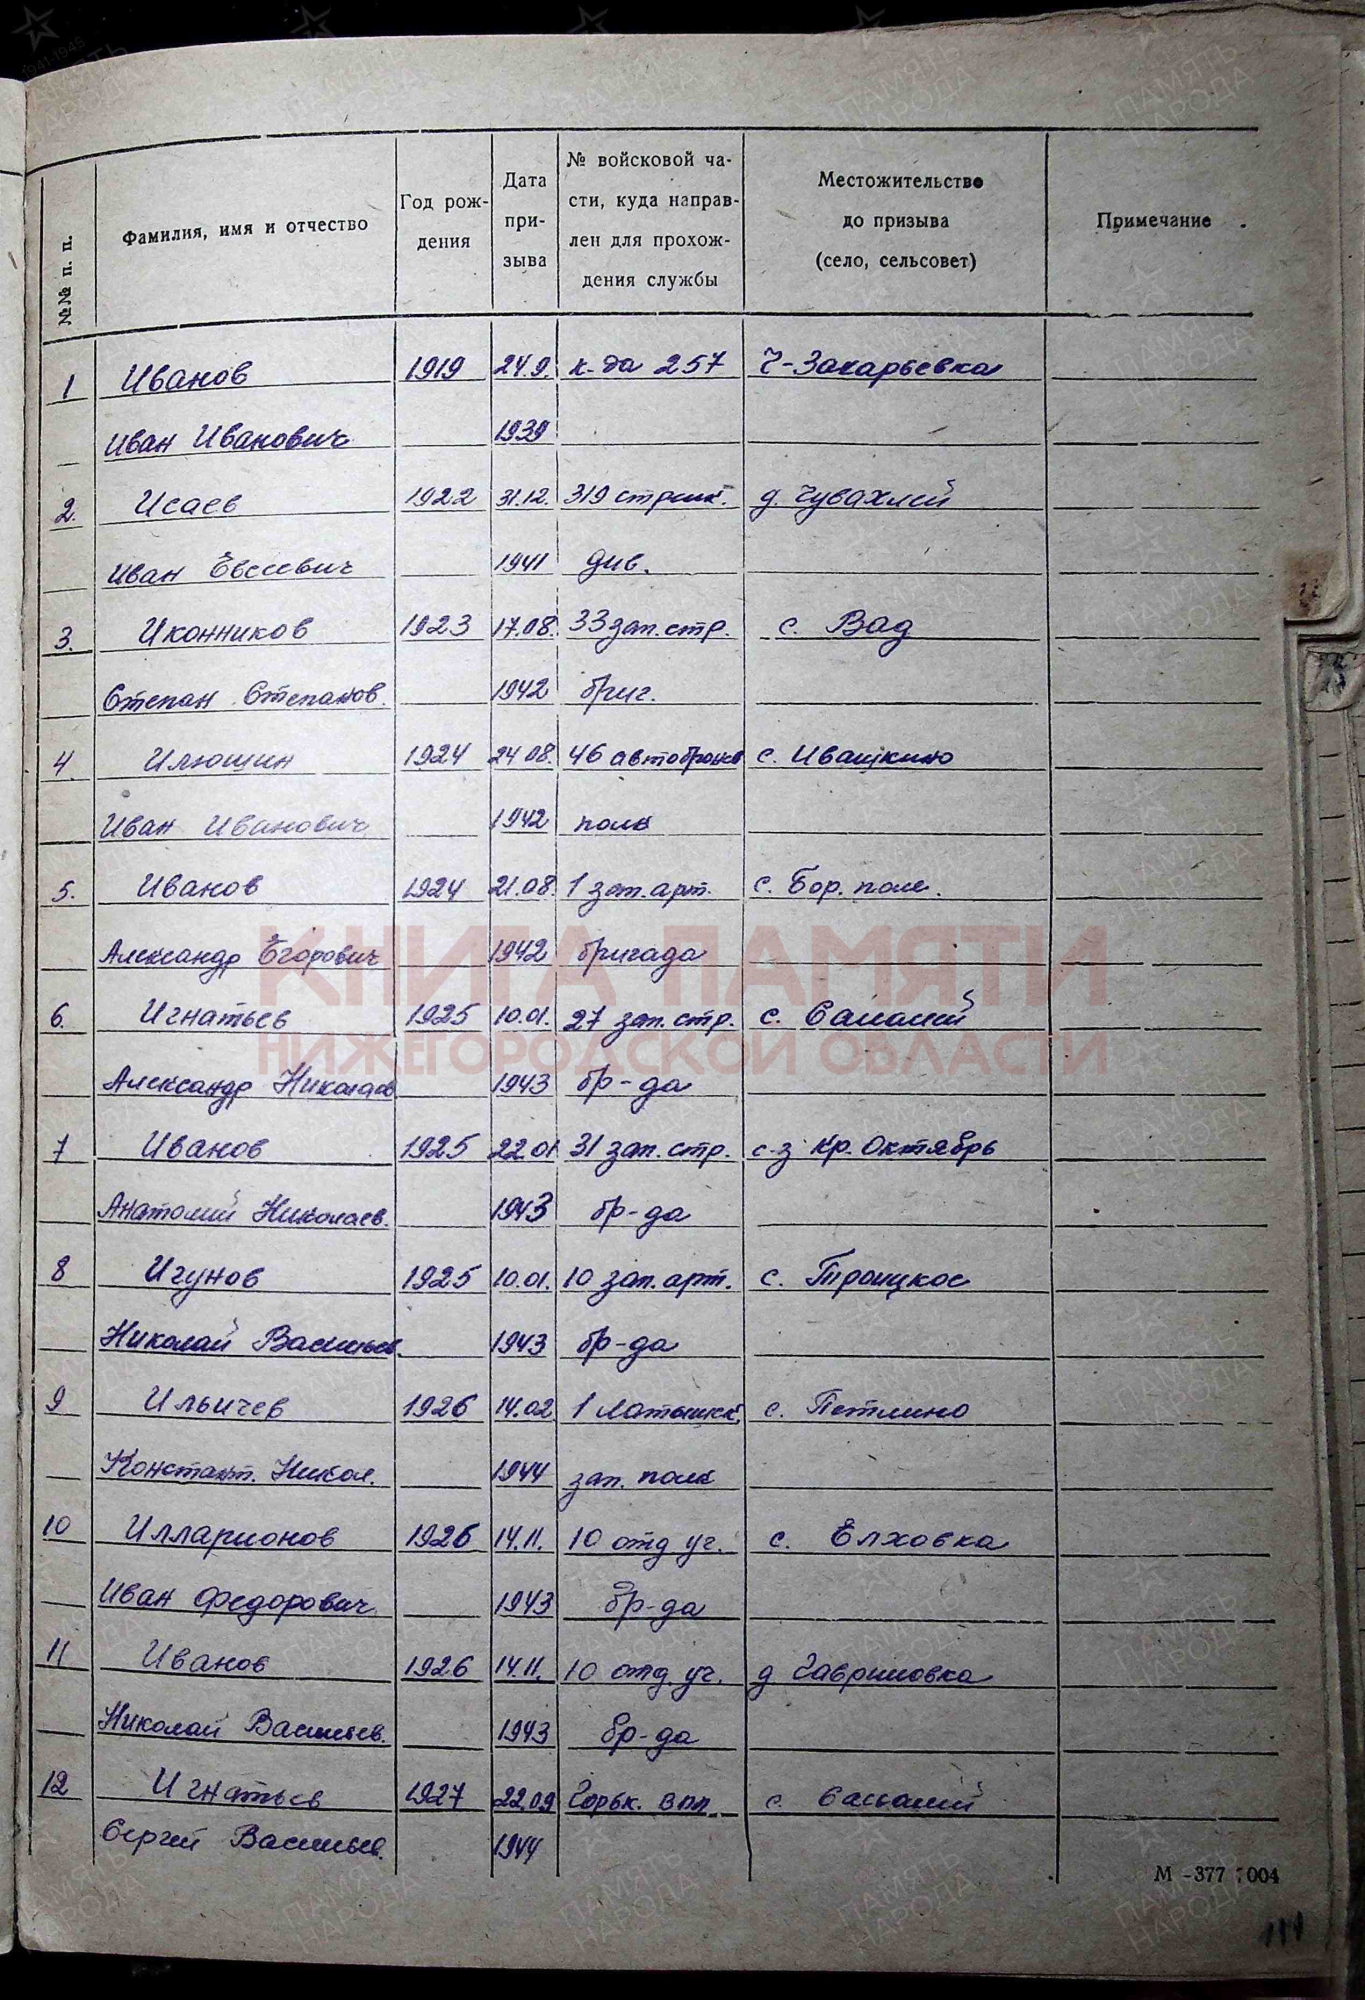 №№ п. п.
Фамилия, имя и отчество
Год рож-
дения
Дата
при-
зыва
№ войсковой ча-
сти, куда направ-
лен для прохож-
дения службы
Местожительство
до призыва
(село, сельсовет)
Примечание
1 Иванов 1919 24.9. к-да 257 Ч-Захарьевка
Иван Иванович 1939
2. Исаев 1922 31.12. 319 стрелк. д. Чувахлей
Иван Евсеевич 1941 див.
3. Иконников 1923 17.08. 33 зап. стр. с. Вад
Степан Степанов. 1942 бриг.
4. Илюшин 1924 24.08. 46 автобронев с. Ивашкино
Иван Иванович 1942 полк
5. Иванов 1924 21.08. 1 зап. арт. с. Бор. поле.
Александр Егорович 1942 бригада
КНИГА ПАМЯТИ
6. Игнатьев 1925 10.01. 27 зап. стр. с.
НИЖЕГОРОДСКОЙ ОБЛАСТИ
Александр Николаев 1943 бр-да
7 Иванов 1925 22.01 31 зап. стр. с-з Кр. Октябрь
Анатолий Николаев. 1943 бр-да
8 Игунов 1925 10.01. 10 зап. арт. с. Троицкое
Николай Васильев. 1943 бр-да
9 Ильичев 1926 14.02 1 Латышск. с. Петлино
Констант. Никол. 1944 зап. полк
10 Илларионов 1926 14.11. 10 отд уч. с. Елховка
Иван Федорович 1943 бр-да
11 Иванов 1926 14.11. 10 отд. уч. д Гавриловка
Николай Васильев. 1943 бр-да
12 Игнатьев 1927 22.09 Горьк. ВПП. с.
Сергей Васильев. 1944
М-377 1004
111
ПАМЯТЬ
НАРОДА